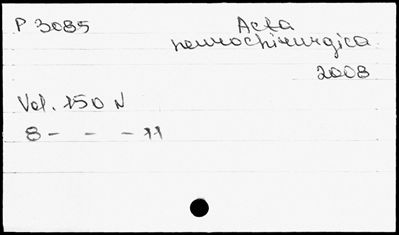 P 3085 Acta
neurochirurgica
2008
Vol. 150 N
8 - - - 11